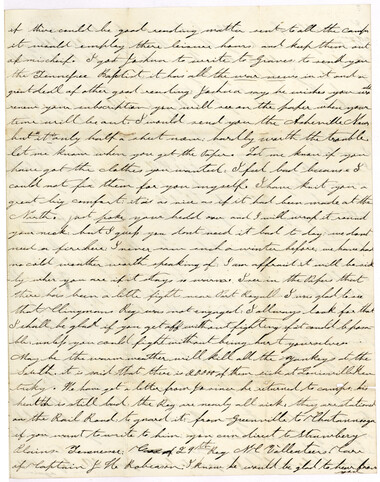 if there could be good reading matter sent to all the camps
it would employ there leisure hours and keep them out
of mischief. I got Joshua to write to Graves to send you
the Tennessee Baptist it has all the war news in it and a
great deal of other good reading Joshua says he wishes you
renew your subscription you will see on the paper when your
time will be out I would send you the Asheville News
but it only half a sheet now, hardly worth the trouble
let me know when you get the papers. Let me know if you
have got the clothes you wanted. I feel bad because I
could not fix them for you myself. I have knit you a
great big comfort it is as nice as if it had been made at the
North, just poke your head out and I will wrap it round
your neck but I guess you dont need it to day we dont
need a fire here I never saw such a winter before we have had
no cold weather worth speaking of I am affraid it will be sickly
where you are if it stays so warm. I see in the papers that
there has been a little fight near Port Royall I was glad to see
that Clingmans Reg was not engaged I allways look for that
I shall be glad if you get off without fighting
unless you could fight without being hurt yourselves
May be the warm weather will kill all the Yankeys at the
South. it is said that there is 20,000 of them sick at Louisville Ken
tucky. We have got a letter from since he returned to camp. his
health is still bad the Reg are nearly all sick. they are stationed
on the Rail Road to guard it from Greenville to Chattanooga
if you want to write to him you can direct to Strawberry
Plains Tennessee, 29th Reg N C Vollenteers Care
of Captain J He Robeson I know he would be glad to hear from
you